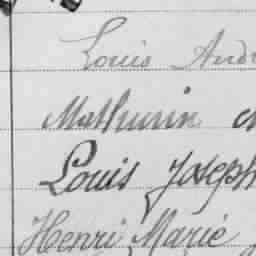 Louis André
Mathurin
Louis Joseph
Henri Marie